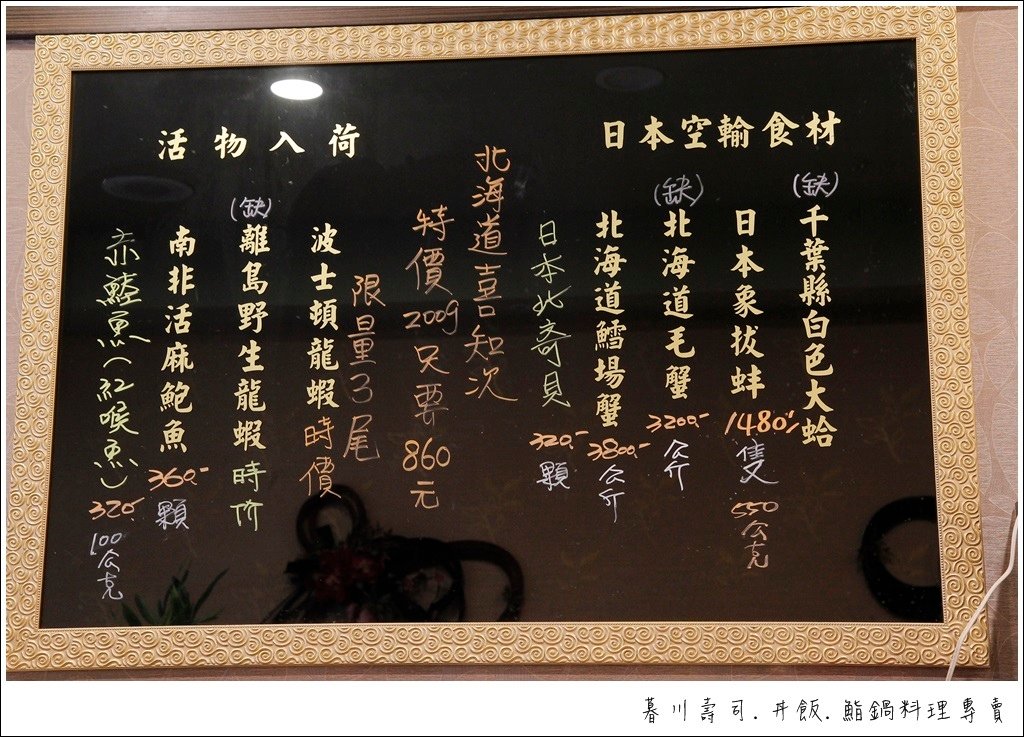 日本空輸食材
(缺)千葉縣白色大蛤
日本象拔蚌1480/隻550公克
(缺)北海道毛蟹3200.-公斤
北海道鱈場蟹3800.-公斤
日本北寄貝320.-顆
北海道喜知次
特價200g只要860元
限量3尾
活物入荷
波士頓龍蝦時價
(缺)離島野生龍蝦時价
南非活麻鮑魚360.-顆
赤鯥魚(紅喉魚)320.100公克
暮川壽司.丼飯.鮨鍋料理專賣